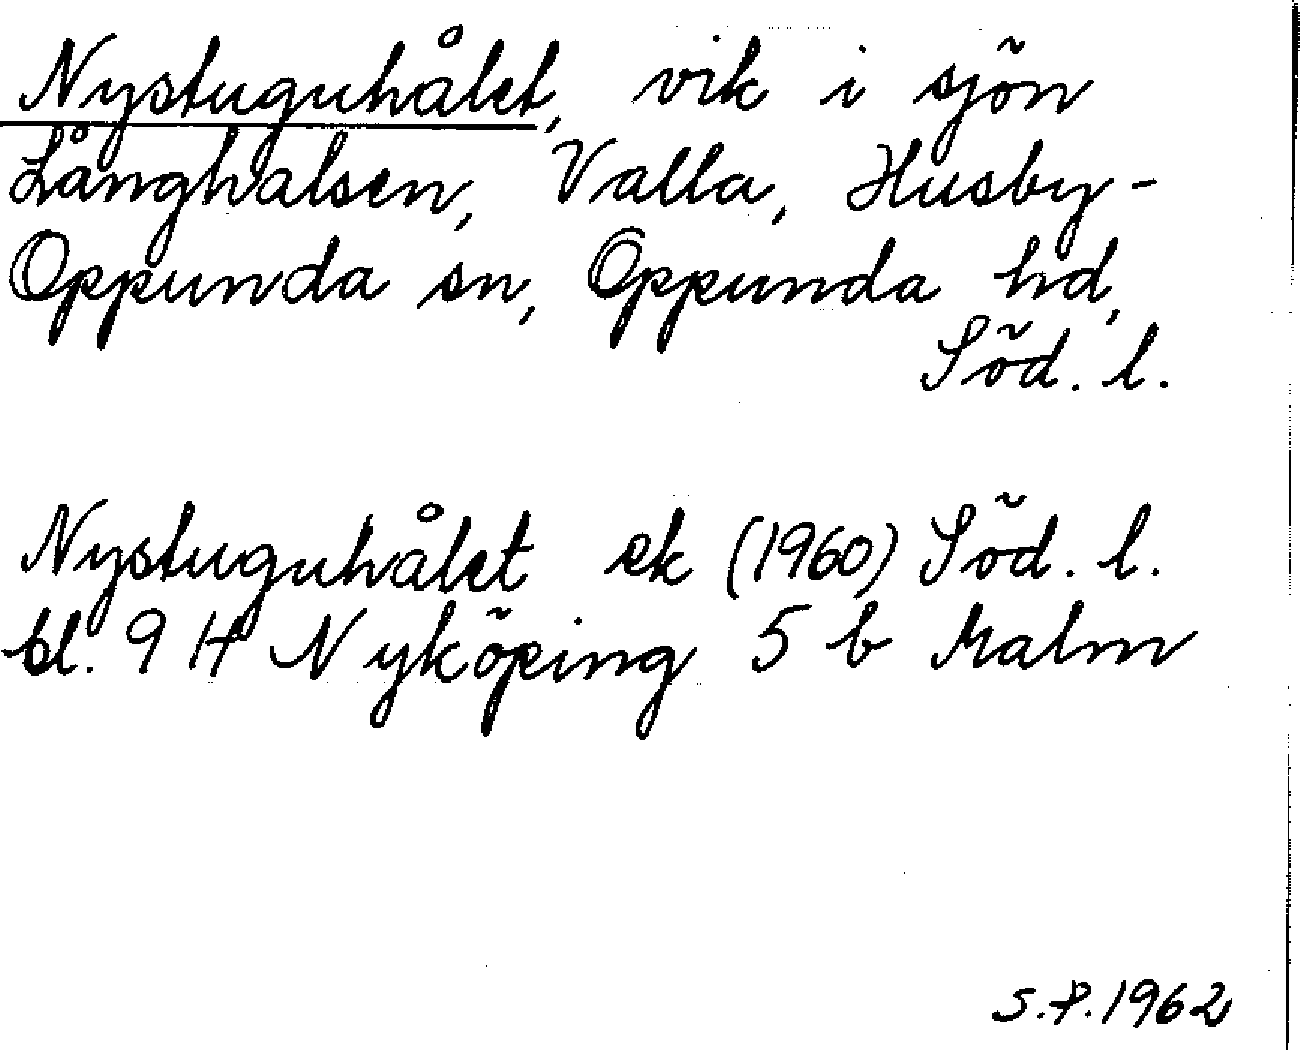 Nystuguhålet, vik i sjön
Långhalsen, Valla, Husby-
Oppunda sn, Oppunda hd,
Söd. l.
Nystuguhålet ek (1960) Söd. l.
bl. 9 H Nyköping 5 b Malm
S.P. 1962